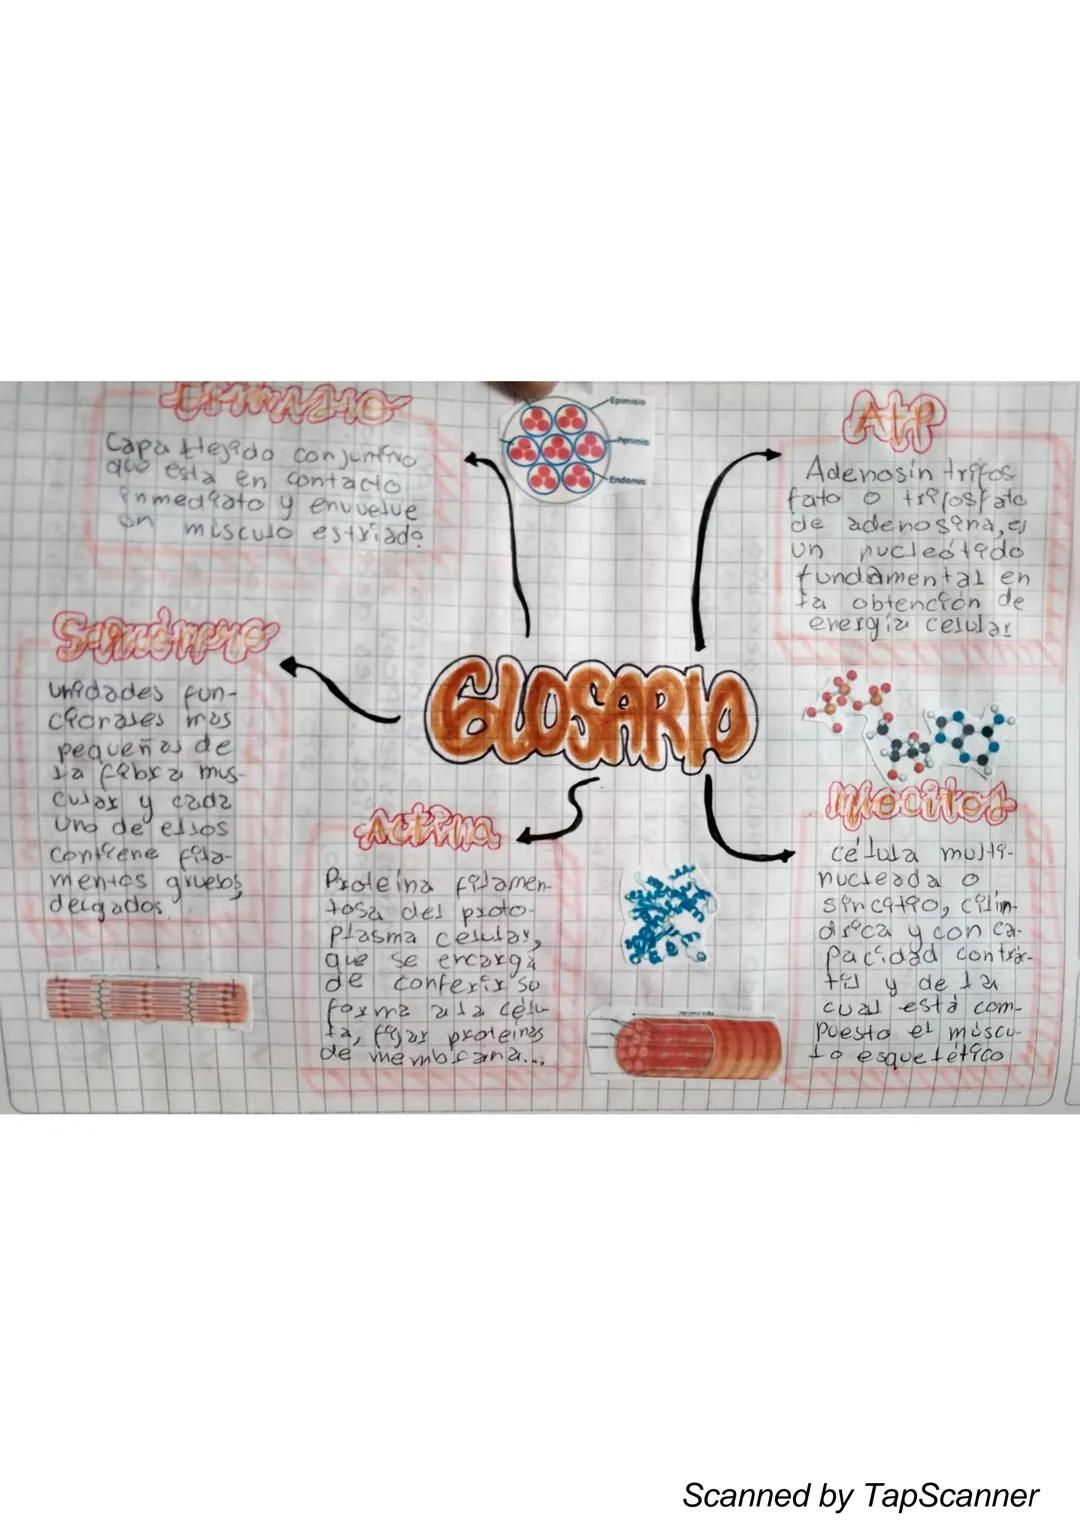 EPIMISIO
Capa tejido conjuntivo
que esta en contacto
inmediato y envuelve
un músculo estriado.
Epimisio
Perimis
Endomis
ATP
Adenosín trifos
fato o trifosfato
de adenosina, es
un nucleótido
fundamental en
la obtención de
energía celular
Sarcómero
Unidades fun-
cionales mas
pequeñas de
la fibra mus-
cular y cada
uno de ellos
contiene fila-
mentos gruesos,
delgados
GLOSARIO
Actina
Proteína filamen-
tosa del proto-
plasma celular,
que se encarga
de conferir su
forma a la célu-
la, fijar proteínas
de membrana...
Miocitos
célula multi-
nucleada o
sincitio, cilín-
drica y con ca-
pacidad contrác-
til y de la
cual está com-
puesto el múscu-
lo esquelético
Scanned by TapScanner